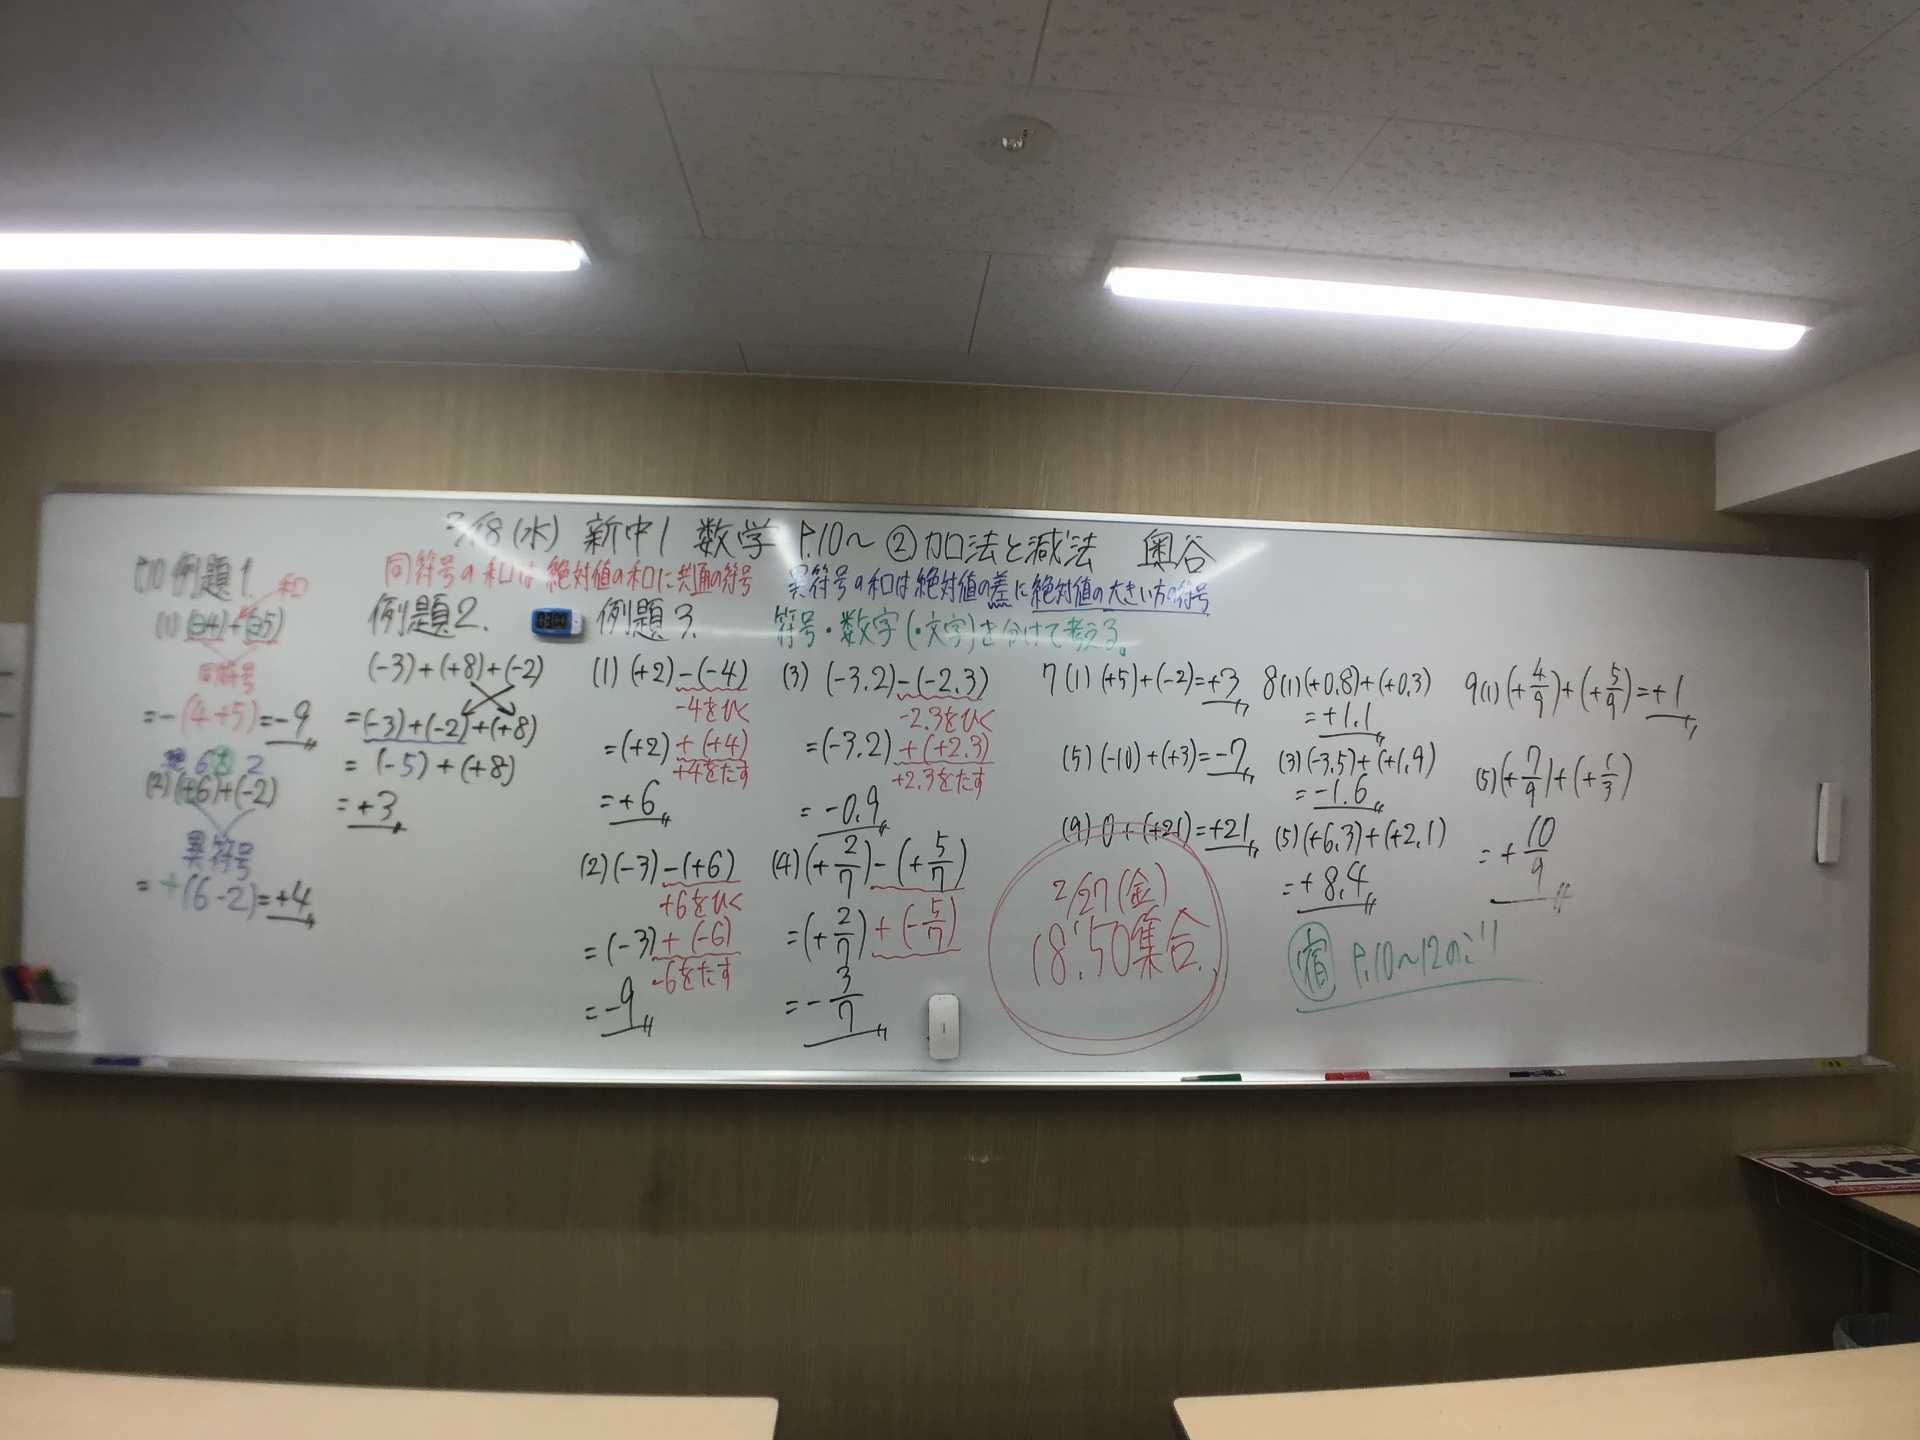 2/18(水) 新中1 数学 P.10～ ②加法と減法 奥谷
同符号の和は絶対値の和に共通の符号
異符号の和は絶対値の差に絶対値の大きい方の符号
符号・数字(・文字)を分けて考える。
P.10 例題1.
和
(1) (-4)+(-5)
同符号
=-(4+5)=-9
6 2
(2) (+6)+(-2)
異符号
=+(6-2)=+4
例題2.
(-3)+(+8)+(-2)
=(-3)+(-2)+(+8)
=(-5)+(+8)
=+3
03:00
例題3.
(1) (+2)-(-4)
-4をひく
=(+2)+(+4)
+4をたす
=+6
(2) (-3)-(+6)
+6をひく
=(-3)+(-6)
-6をたす
=-9
(3) (-3.2)-(-2.3)
-2.3をひく
=(-3.2)+(+2.3)
+2.3をたす
=-0.9
(4) (+2/7)-(+5/7)
=(+2/7)+(-5/7)
=-3/7
7 (1) (+5)+(-2)=+3
(5) (-10)+(+3)=-7
(9) 0+(+21)=+21
8 (1) (+0.8)+(+0.3)
=+1.1
(3) (-3.5)+(+1.9)
=-1.6
(5) (+6.3)+(+2.1)
=+8.4
9 (1) (+4/9)+(+5/9)=+1
(5) (+7/9)+(+1/3)
=+10/9
2/27(金)
18:50集合.
宿 P.10～12のこり